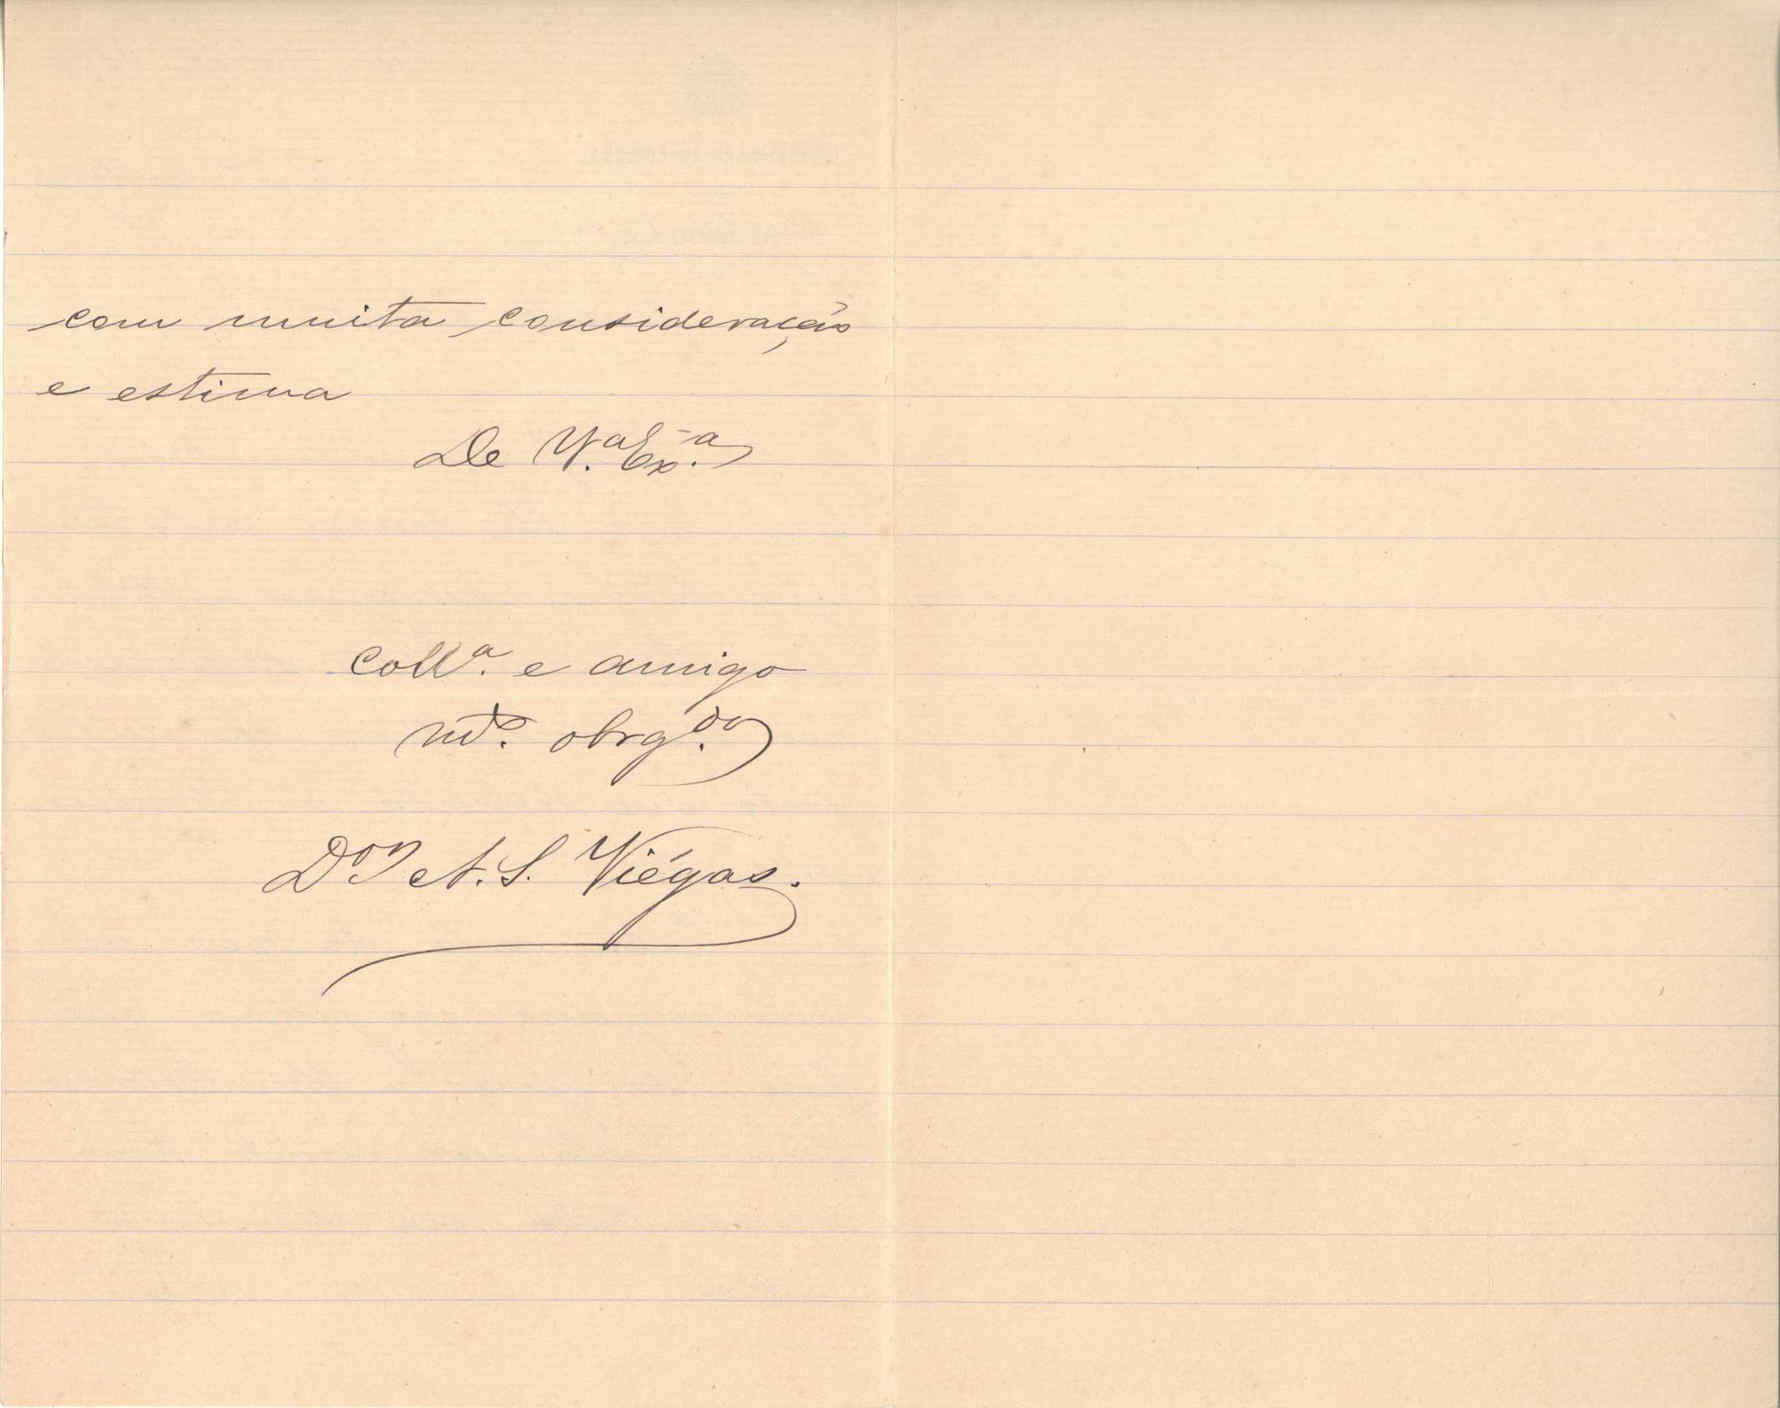 com muita consideração
e estima
De V.ª Ex.ª
Coll.ª e amigo
mt.º obrg.do
Dor A. S. Viégas.